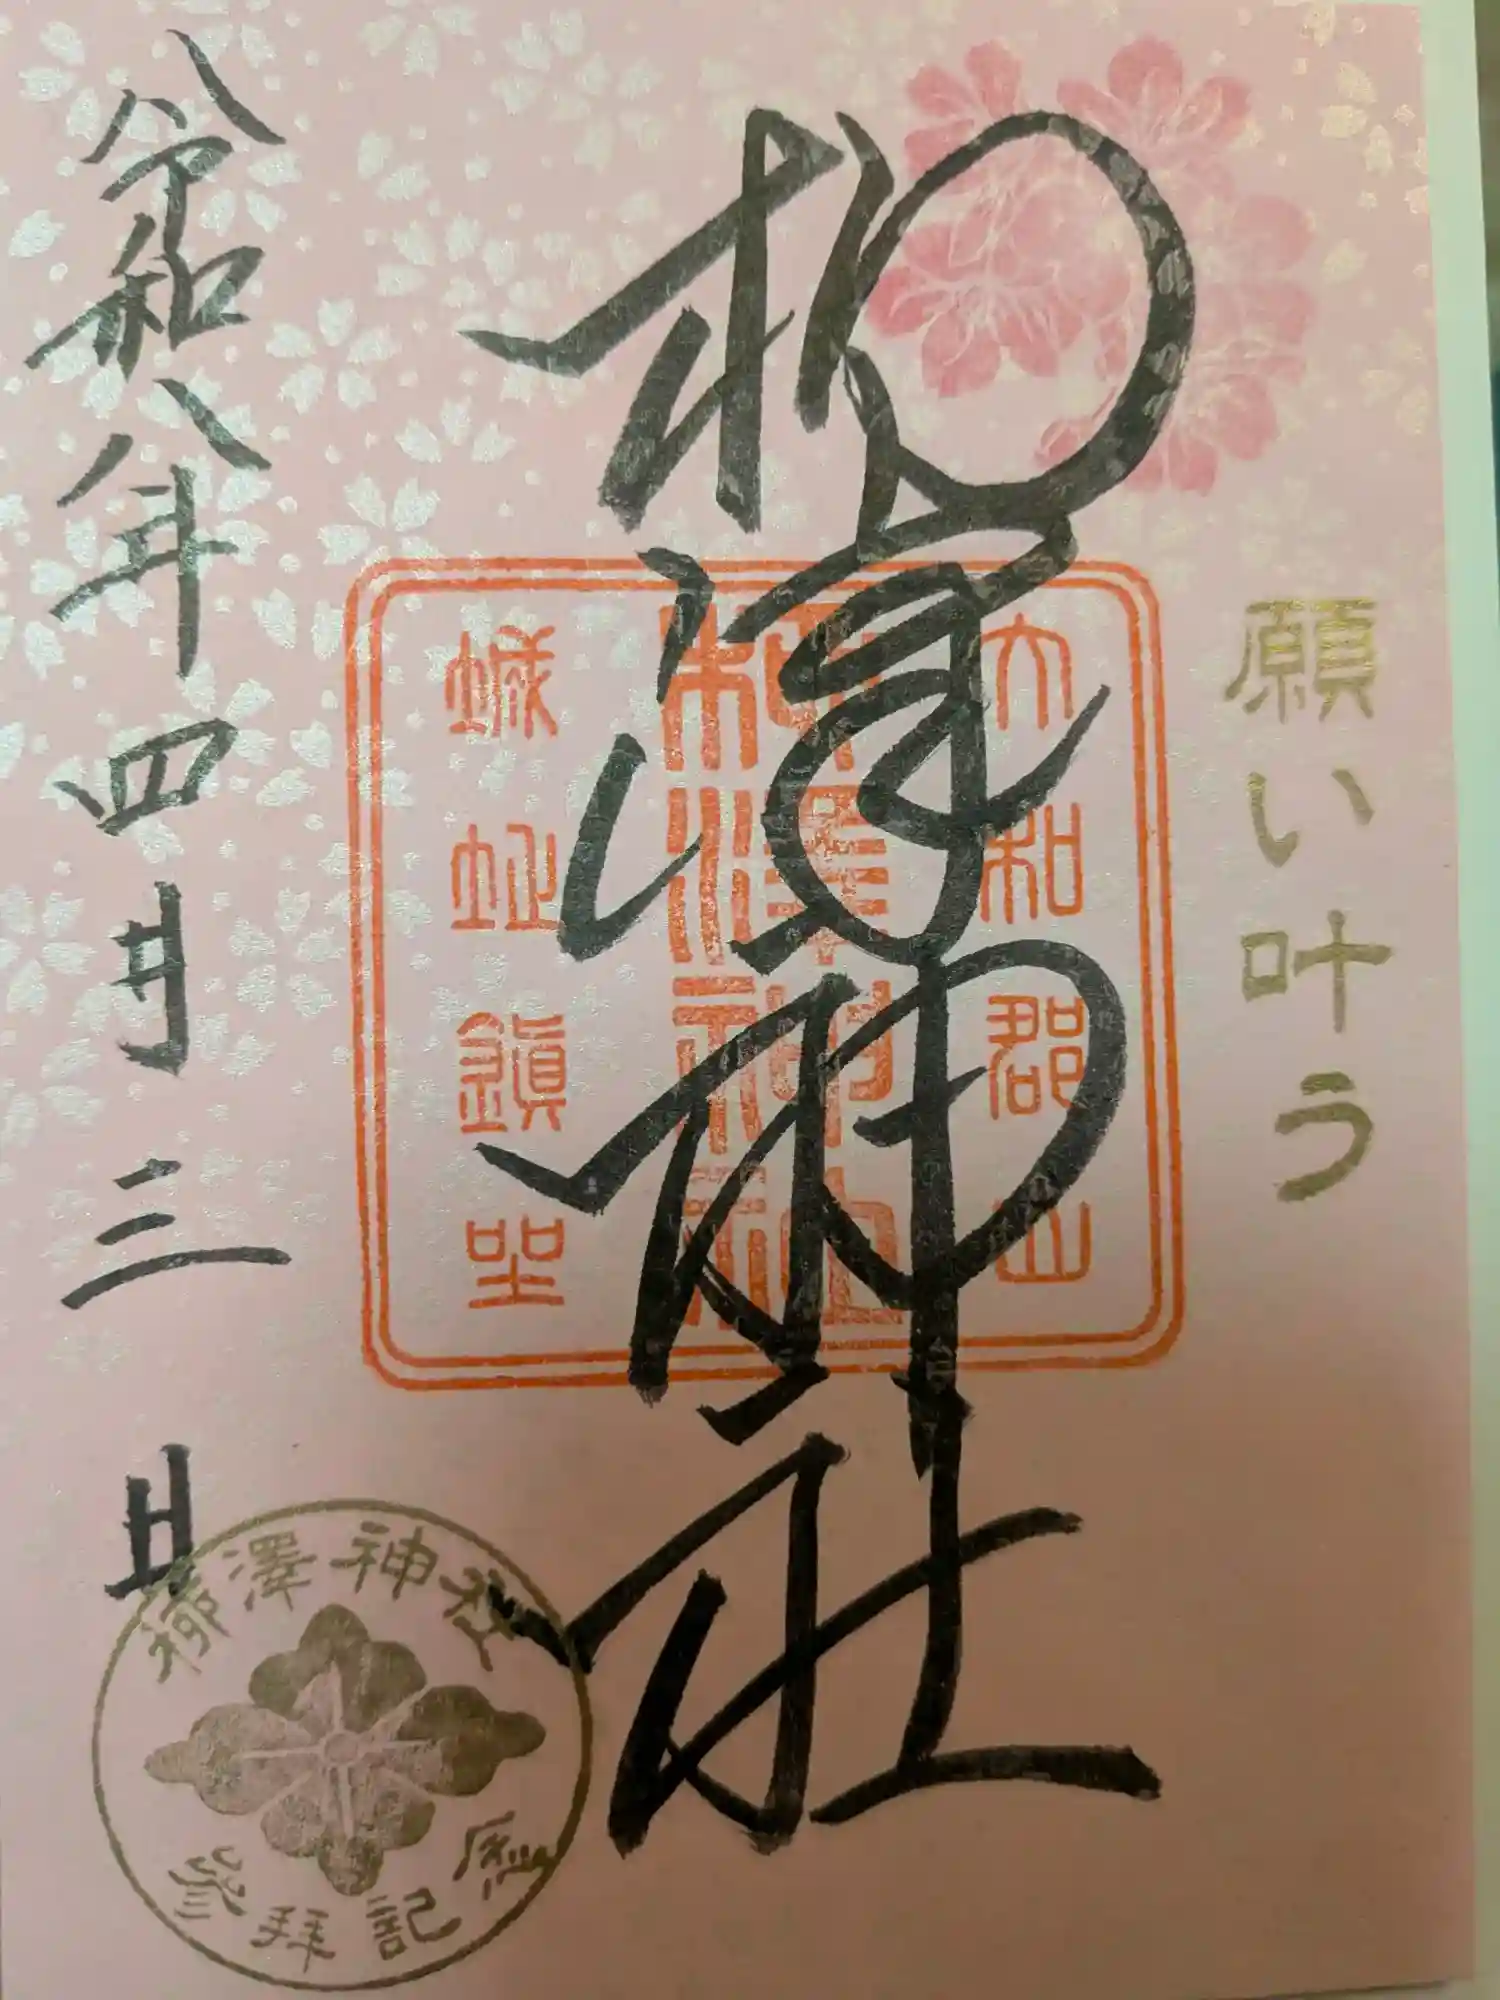 願い叶う
柳澤神社
大和郡山
柳澤神社
城址鎮坐
令和八年四月三日
柳澤神社
參拜記念